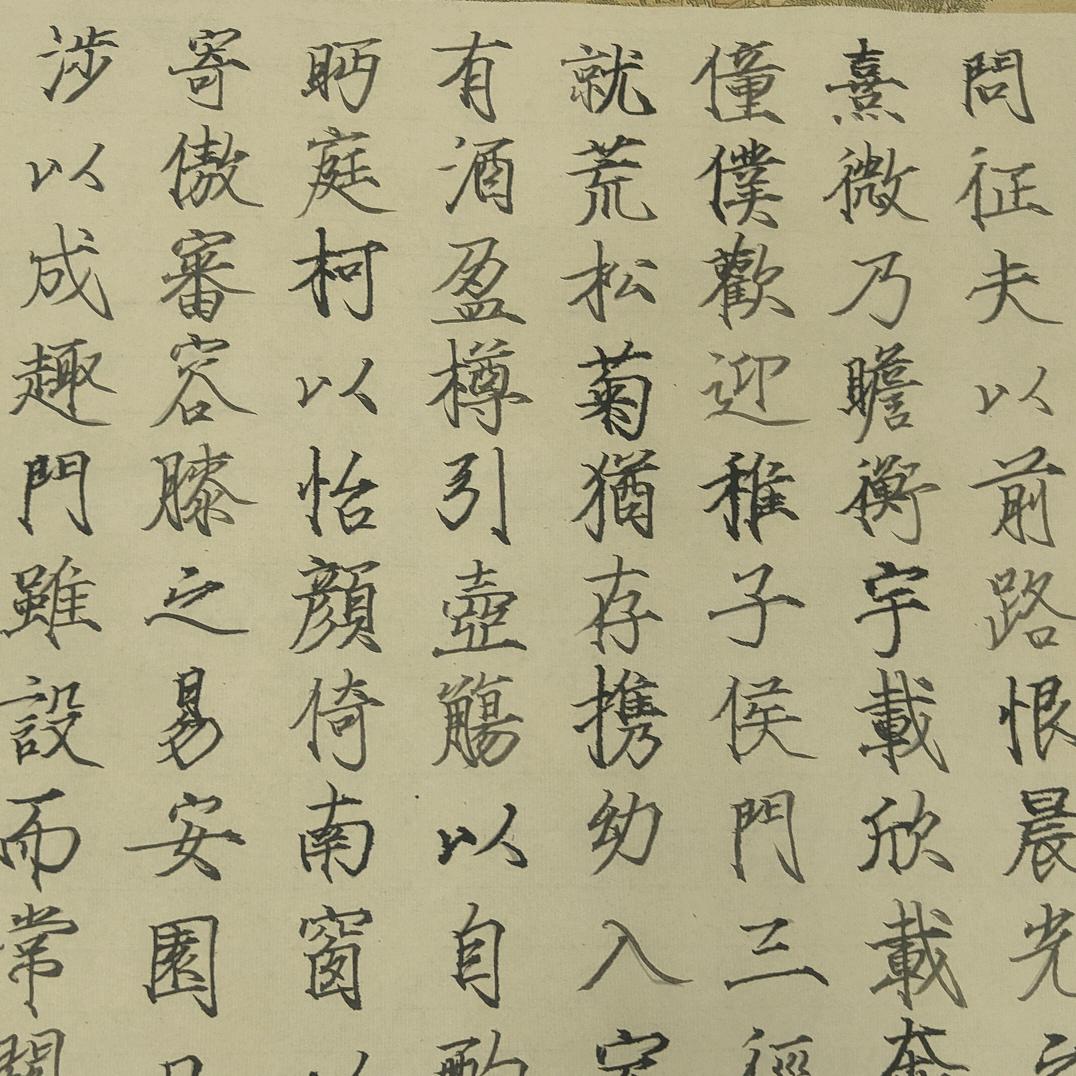 問征夫以前路恨晨光
熹微乃瞻衡宇載欣載奔
僮僕歡迎稚子侯門三徑
就荒松菊猶存攜幼入室
有酒盈樽引壺觴以自酌
眄庭柯以怡顏倚南窗以
寄傲審容膝之易安園日
涉以成趣門雖設而常關